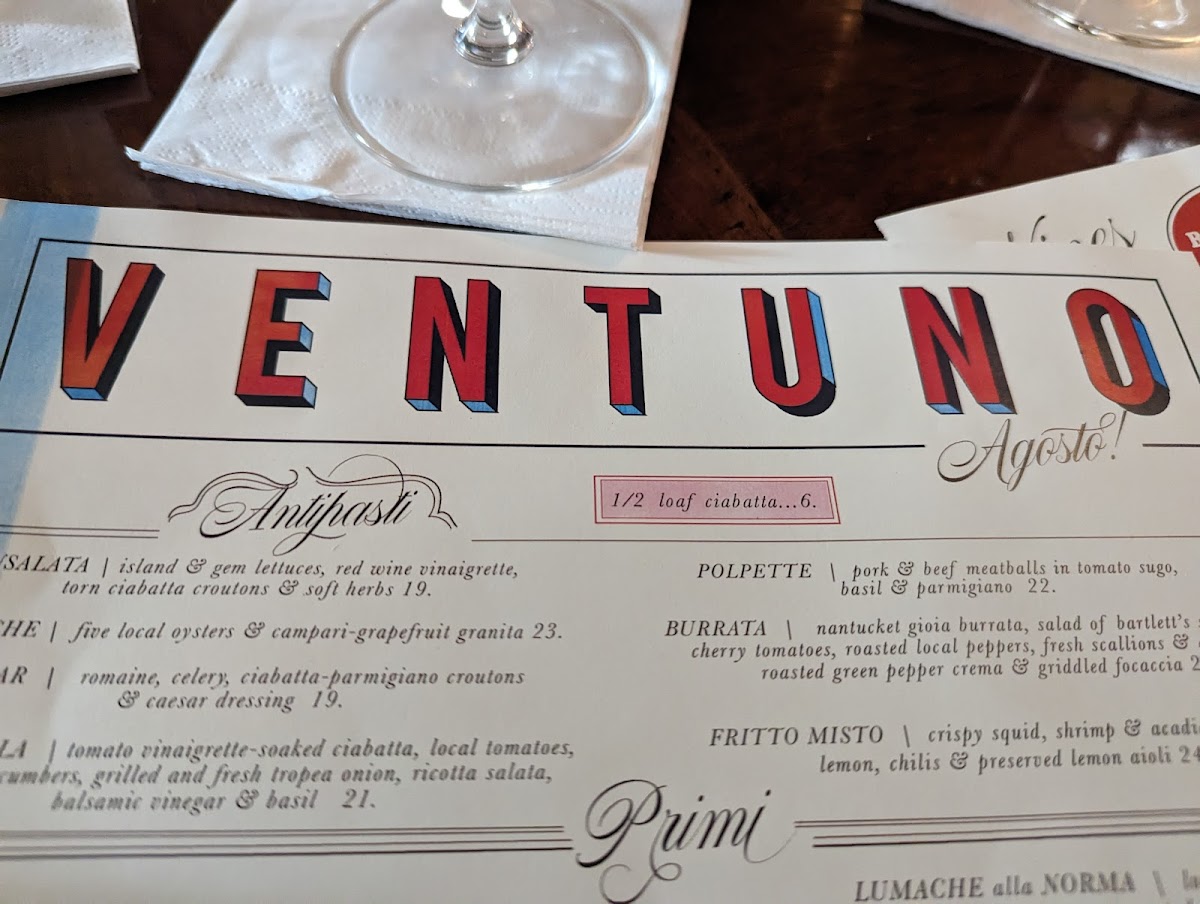 Wines
VENTUNO
Agosto!
Antipasti
1/2 loaf ciabatta...6.
SALATA | island & gem lettuces, red wine vinaigrette,
torn ciabatta croutons & soft herbs 19.
CHE | five local oysters & campari-grapefruit granita 23.
AR | romaine, celery, ciabatta-parmigiano croutons
& caesar dressing 19.
LA | tomato vinaigrette-soaked ciabatta, local tomatoes,
cumbers, grilled and fresh tropea onion, ricotta salata,
balsamic vinegar & basil 21.
POLPETTE | pork & beef meatballs in tomato sugo,
basil & parmigiano 22.
BURRATA | nantucket gioia burrata, salad of bartlett's
cherry tomatoes, roasted local peppers, fresh scallions &
roasted green pepper crema & griddled focaccia 2
FRITTO MISTO | crispy squid, shrimp & acadi
lemon, chilis & preserved lemon aioli 24
Primi
LUMACHE alla NORMA |